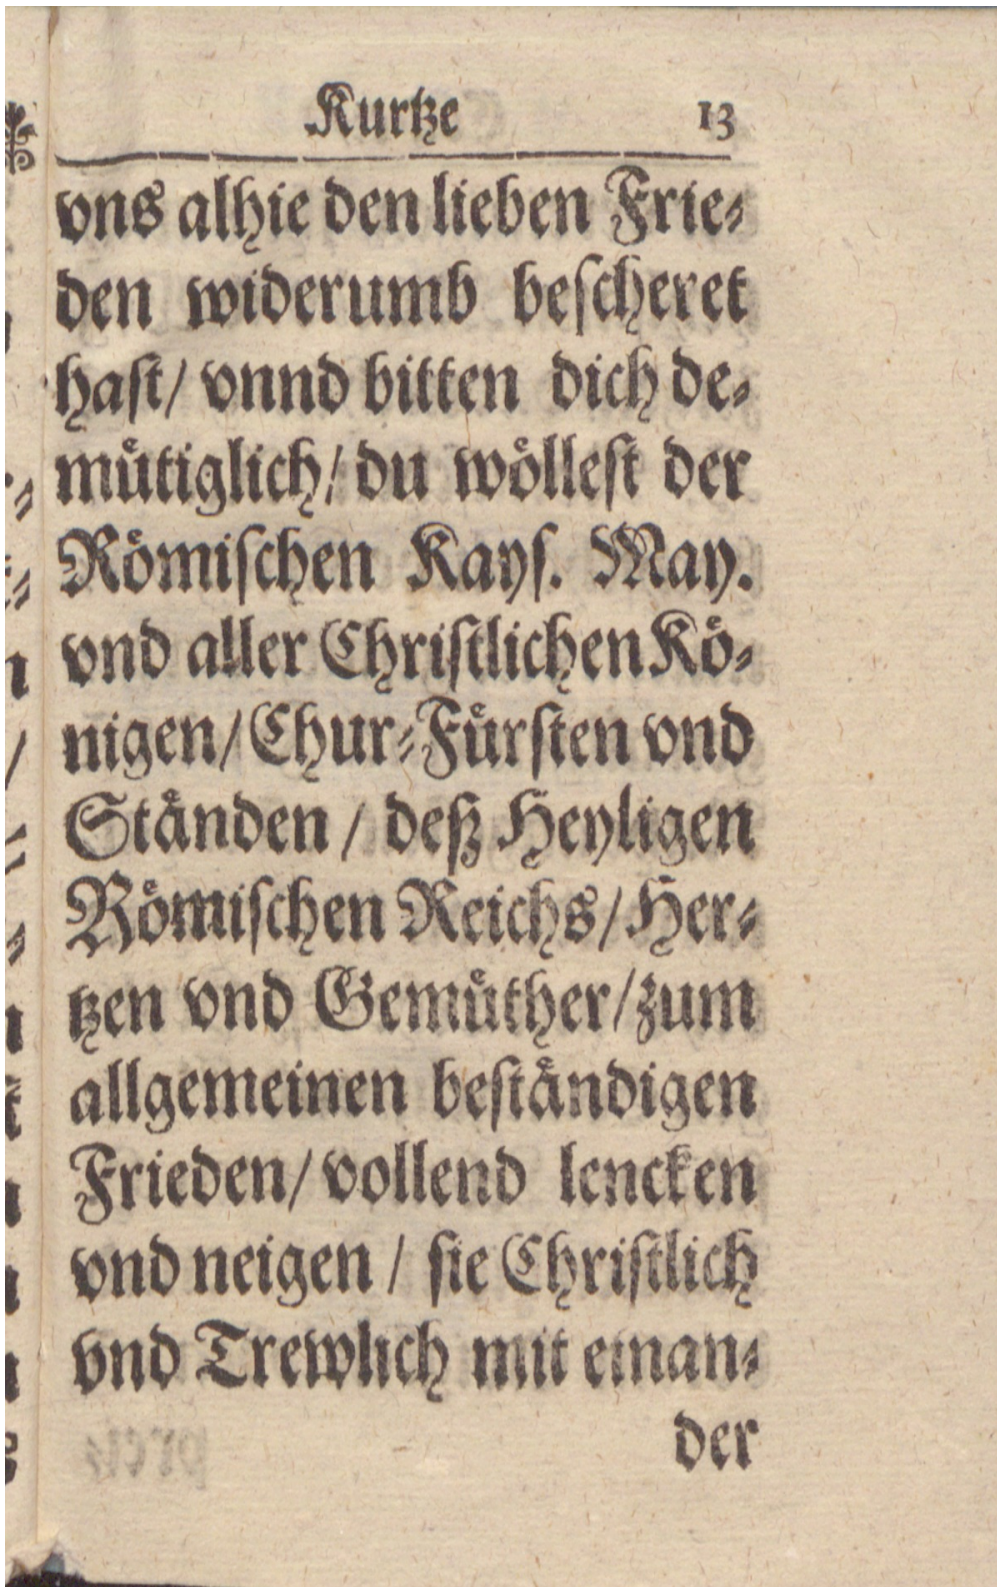 Kurtze 13
vns alhie den lieben Frie⸗
den widerumb beſcheret
haſt/ vnnd bitten dich de⸗
muͤtiglich/ du woͤlleſt der
Roͤmiſchen Kayſ. May.
vnd aller Chriſtlichen Koͤ⸗
nigen/ Chur⸗Fuͤrſten vnd
Staͤnden / deß Heyligen
Roͤmiſchen Reichs/ Her⸗
tzen vnd Gemuͤther/ zum
allgemeinen beſtaͤndigen
Frieden/ vollend lencken
vnd neigen / ſie Chriſtlich
vnd Trewlich mit einan⸗
der